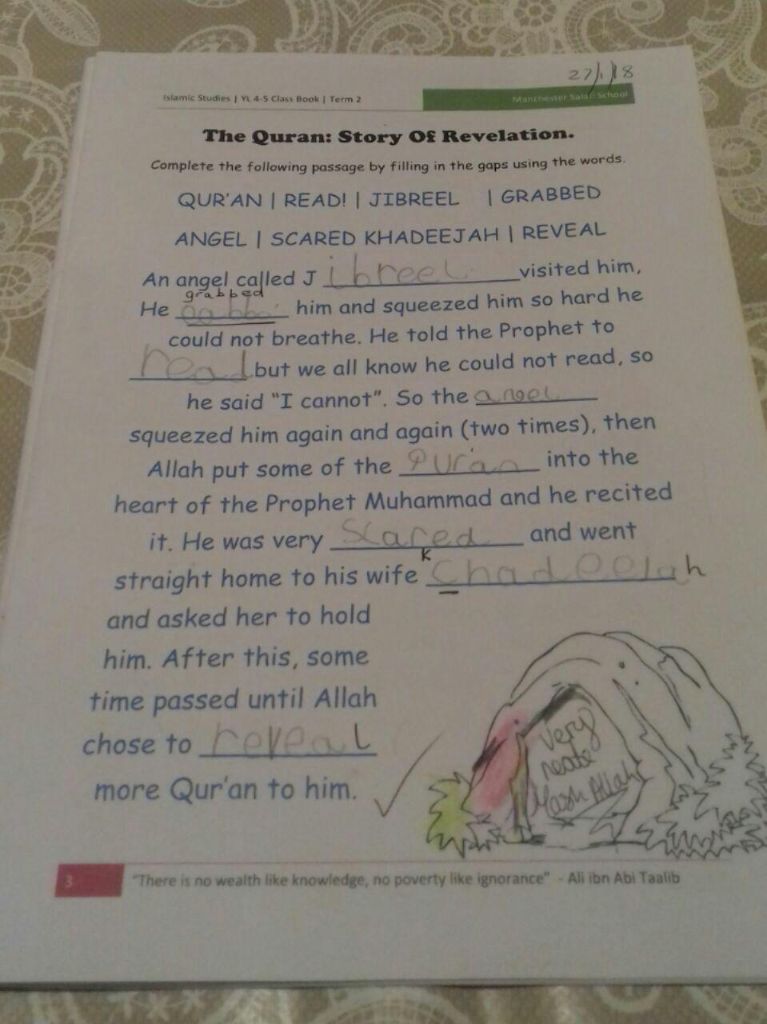 27/1/18
Islamic Studies | YL 4-5 Class Book | Term 2
Manchester Salafi School
The Quran: Story Of Revelation.
Complete the following passage by filling in the gaps using the words.
QUR'AN | READ! | JIBREEL | GRABBED
ANGEL | SCARED KHADEEJAH | REVEAL
An angel called J ibreel visited him,
grabbed
He him and squeezed him so hard he
could not breathe. He told the Prophet to
read but we all know he could not read, so
he said "I cannot". So the
squeezed him again and again (two times), then
Allah put some of the Qur'an into the
heart of the Prophet Muhammad and he recited
it. He was very Scared and went
K
straight home to his wife Chadeejah
and asked her to hold
him. After this, some
time passed until Allah
chose to reveal
more Qur'an to him.
Very
Mash Allah
3 "There is no wealth like knowledge, no poverty like ignorance" - Ali ibn Abi Taalib